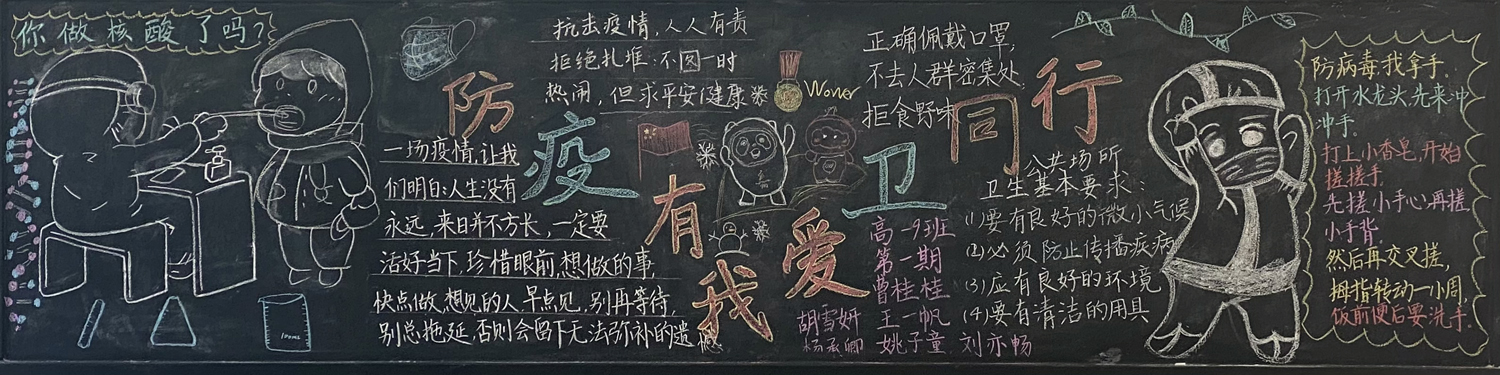 你做核酸了吗?
抗击疫情,人人有责
拒绝扎堆:不图一时
热闹,但求平安健康
正确佩戴口罩,
不去人群密集处,
拒食野味
Wonner
防疫有我
爱卫同行
一场疫情,让我
们明白:人生没有
永远,来日并不方长,一定要
活好当下,珍惜眼前,想做的事
快点做,想见的人早点见,别再等待,
别总拖延,否则会留下无法弥补的遗憾
100mL
高一9班
第一期
曾桂桂
胡雪妍 王一帆
杨承卿 姚子童 刘亦畅
公共场所
卫生基本要求:
(1)要有良好的微小气候
(2)必须防止传播疾病
(3)应有良好的环境
(4)要有清洁的用具
防病毒,我拿手。
打开水龙头,先来冲
冲手。
打上小香皂,开始
搓搓手。
先搓小手心,再搓
小手背
然后再交叉搓,
拇指转动一小周,
饭前便后要洗手。